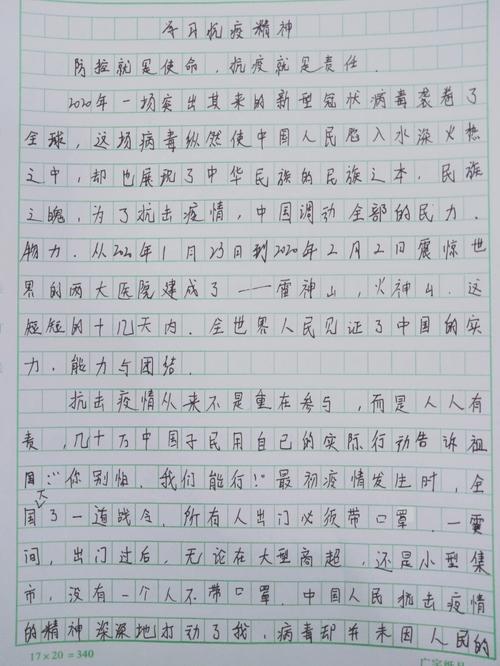 学习抗疫精神
防控就是使命，抗疫就是责任.
2020年一场突出其来的新型冠状病毒袭卷了
全球，这场病毒纵然使中国人民陷入水深火热
之中，却也展现了中华民族的民族之本，民族
之魄，为了抗击疫情，中国调动全部的民力.
物力.从2020年1月23日到2020年2月2日震惊世
界的两大医院建成了——雷神山，火神山.这
短短的十几天内.全世界人民见证了中国的实
力，能力与团结.
抗击疫情从来不是重在参与，而是人人有
责，几十万中国子民用自己的实际行动告诉祖
国："你别怕，我们能行!"最初疫情发生时，全
国下了一道战令，所有人出门必须带口罩.一霎
间，出门过后，无论在大型商超，还是小型集
市，没有一个人不带口罩.中国人民抗击疫情
的精神深深地打动了我，病毒却并未因人民的
17×20=340